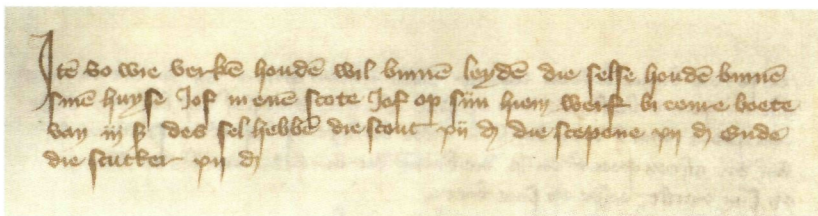 Itē so wie verkē houdē wil binnē leydē die selse houdē binnē
sinē huyse Jof in enē scote Jof op sijn hiem werf bi eenre boete
van iij ß des sel hebbē die scout xij d die scepene xij d Ende
die stucker xij d